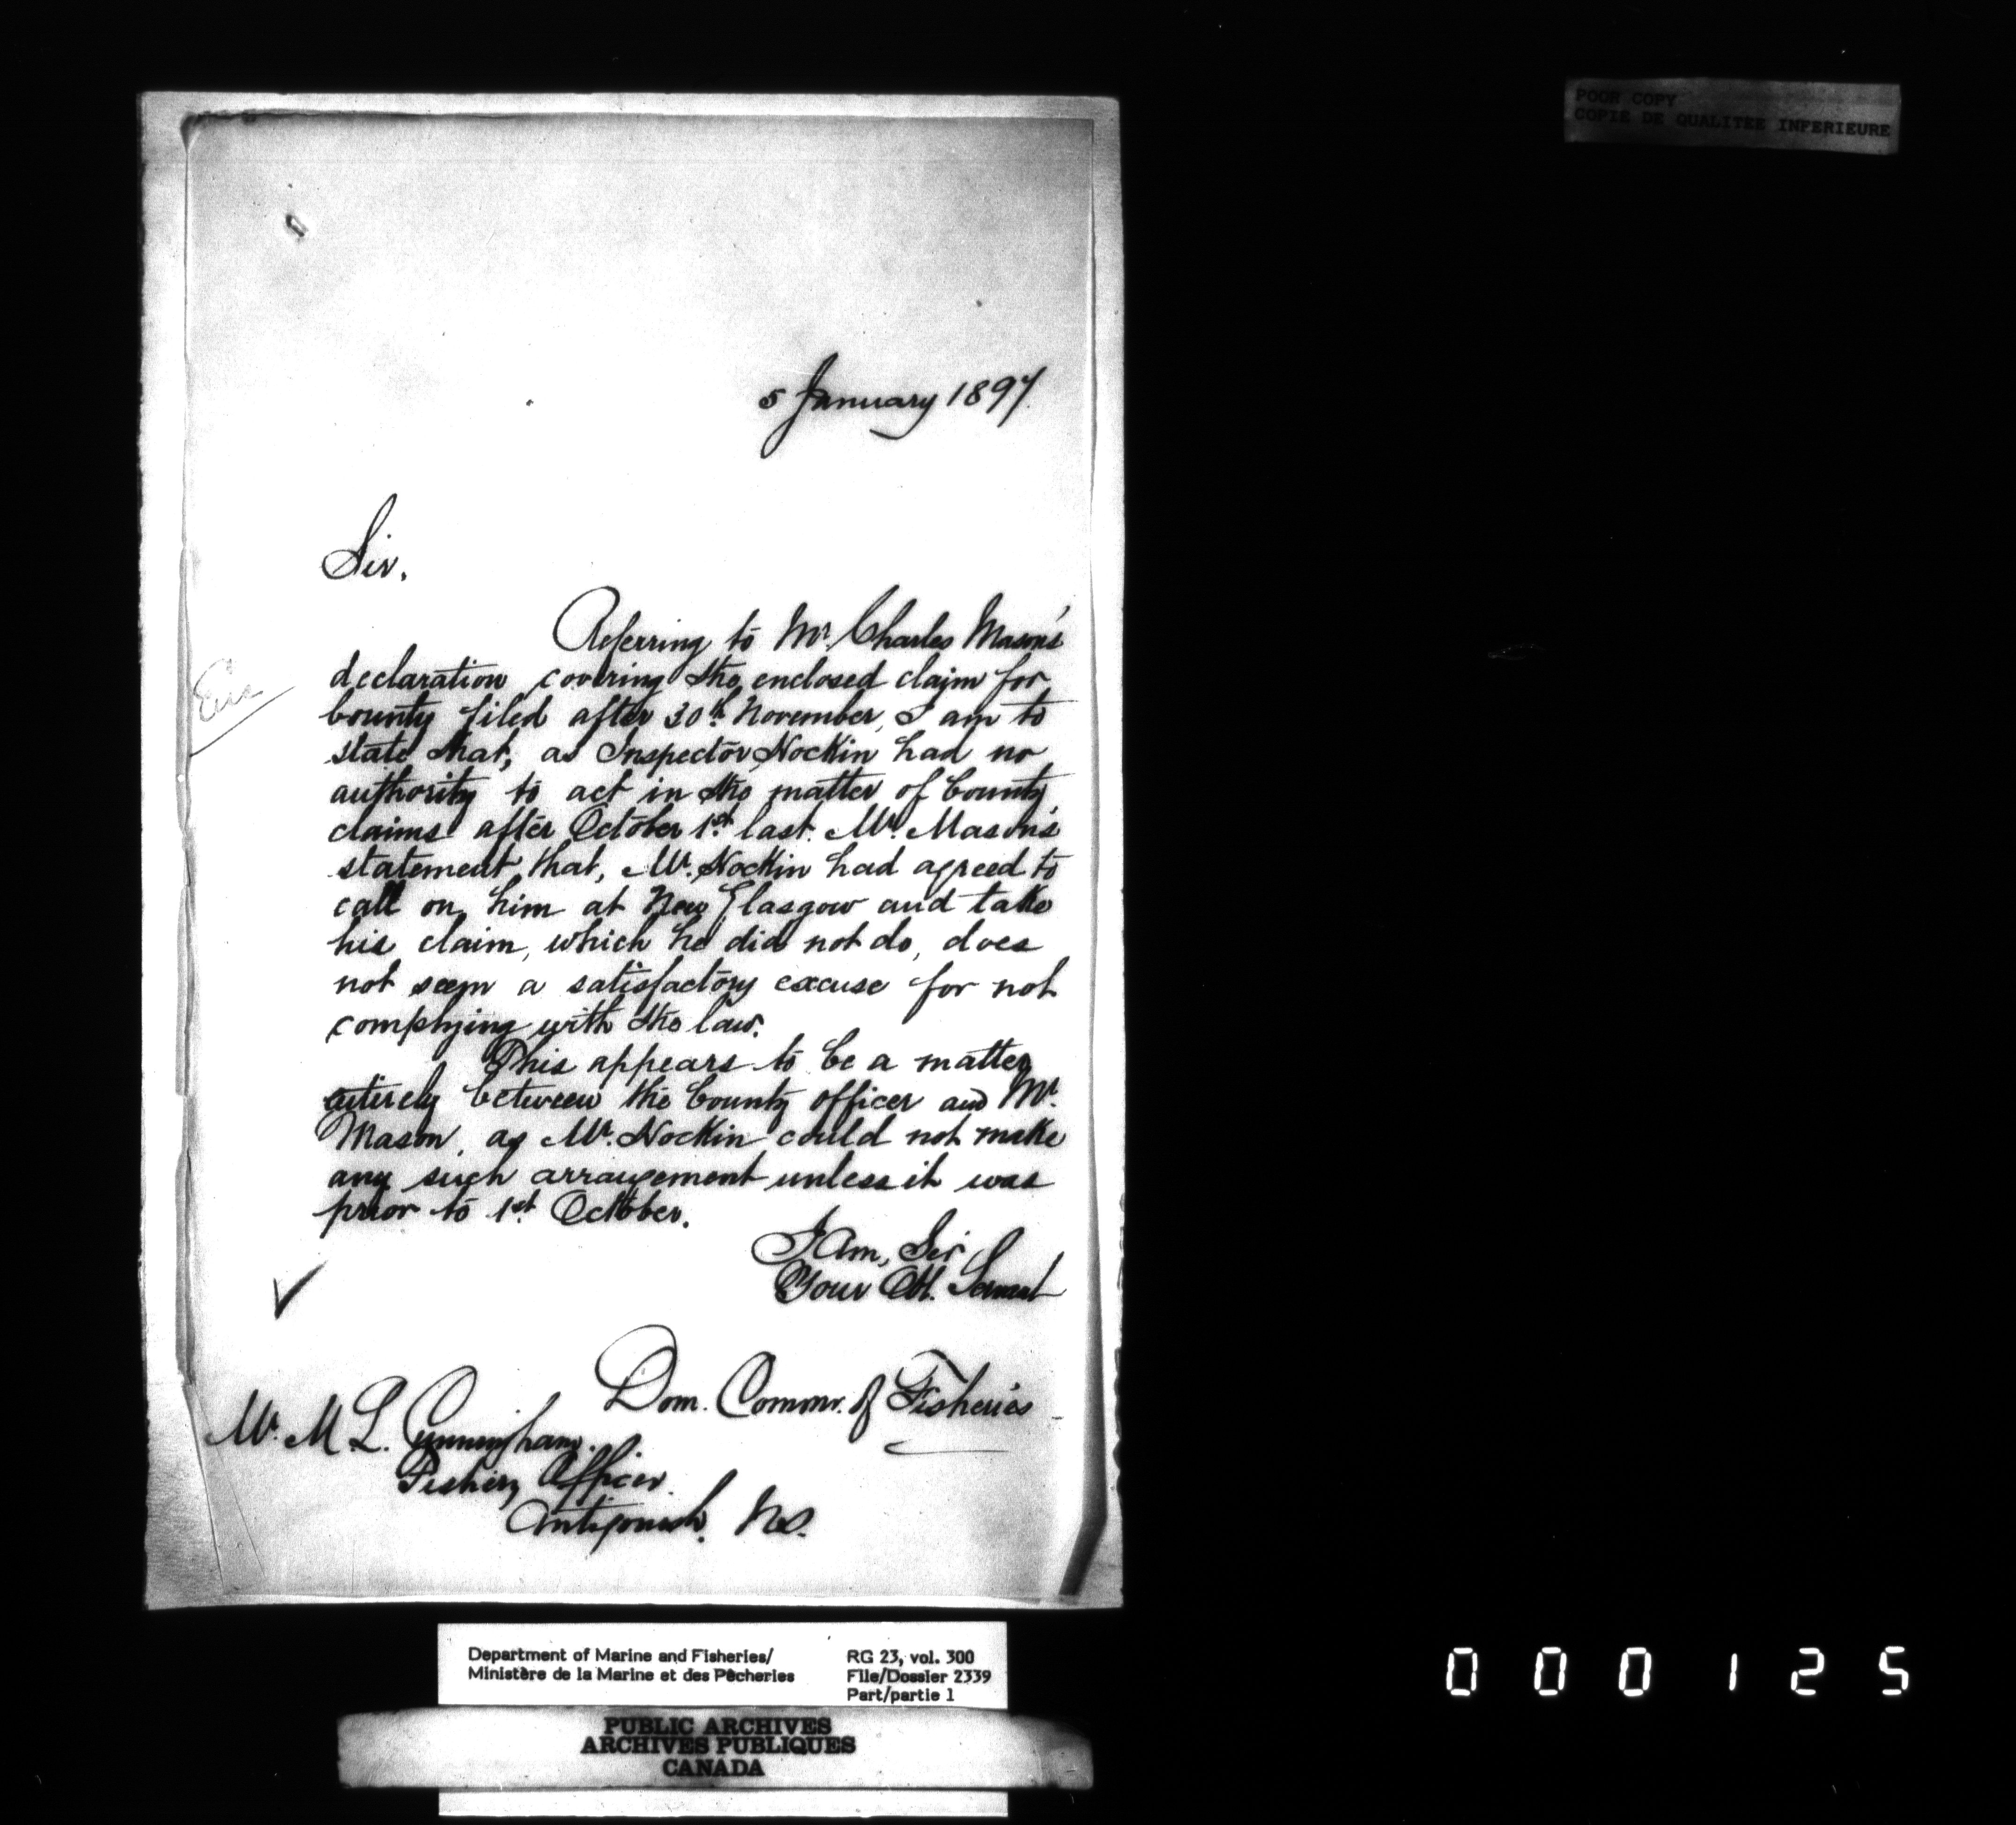 POOR COPY
COPIE DE QUALITEE INFERIEURE
5 January 1897.
Sir,
Referring to Mr. Charles Mason's
declaration covering the enclosed claim for
bounty filed after 30th November, I am to
state that, as Inspector Hockin had no
authority to act in the matter of bounty
claims after October 1st last. Mr. Mason's
statement that, Mr. Hockin had agreed to
call on him at New Glasgow and take
his claim, which he did not do, does
not seem a satisfactory excuse for not
complying with the law.
This appears to be a matter
entirely between the bounty officer and Mr.
Mason, as Mr. Hockin could not make
any such arrangement unless it was
prior to 1st October.
I Am, Sir
Your Ob. Servant
Dom. Commr. of Fisheries
Mr. M. L. Cunningham.
Fishery Officer.
Antigonish. NS.
Department of Marine and Fisheries/
Ministère de la Marine et des Pêcheries
RG 23, vol. 300
File/Dossier 2339
Part/partie 1
PUBLIC ARCHIVES
ARCHIVES PUBLIQUES
CANADA
000125